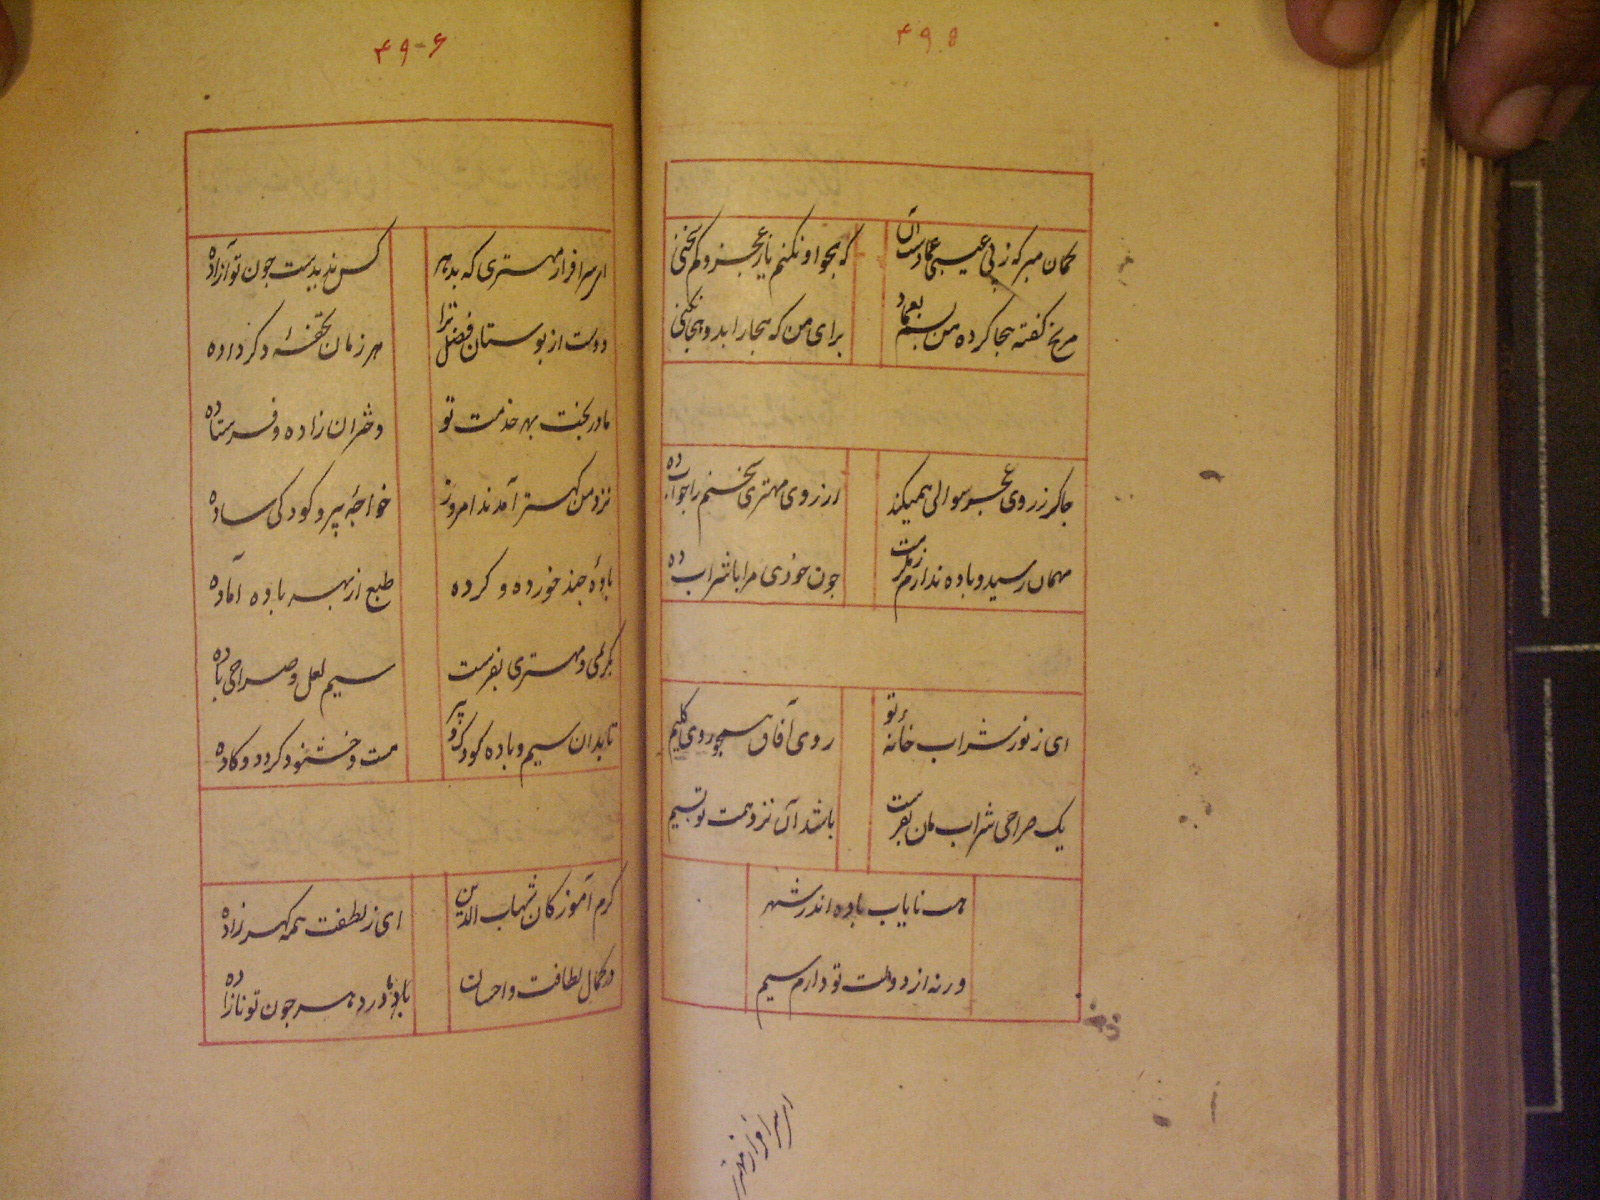 ۴۹۵
گمان مبر که ز بی عیبی عماد است آن
که هجو او نکنم یا ز عجز و کم سخنی
مریخ گفته هجا کرده من بسم بعماد
برای من که هجا را بدو هجا نکنی
چاکر ز روی عجز سوالی همیکند
از روی مهتری سخنم را جواب ده
مهمان رسید و باده ندارم
چون خوذی مرا با شراب ده
ای ز نور شراب خانهٔ تو
روی آفاق همجو روی کلیم
یک صراحی شراب مان بفرست
باشد آن نزد همت تو نسیم
هست نایاب باده اندر شهر
ورنه از دولت تو دارم سیم
ای سرافراز مهتر
۴۹۰۶
ای سرافراز مهتری که بدهر
کس ندیدست جون تو آزاده
دولت از بوستان فضل ترا
هر زمان تحفهٔ دکر داده
مادر بخت بهر خدمت تو
دختران زاده و فرستاده
نزد من کهتر آمدند امروز
خواجهٔ پیر و کودکی ساده
بادهٔ چند خورده و کرده
طبع از بهر باده آماده
کرمی و مهتری بفرست
سیم لعل و صراحی باده
تا بدان سیم و باده کودک و پیر
مست و خشنود کردد و کاده
کرم آموزگان شهاب الدین
ای ز لطفت همه کهر زاده
در کمال لطافت و احسان
مادر دهر جون تو نازاده